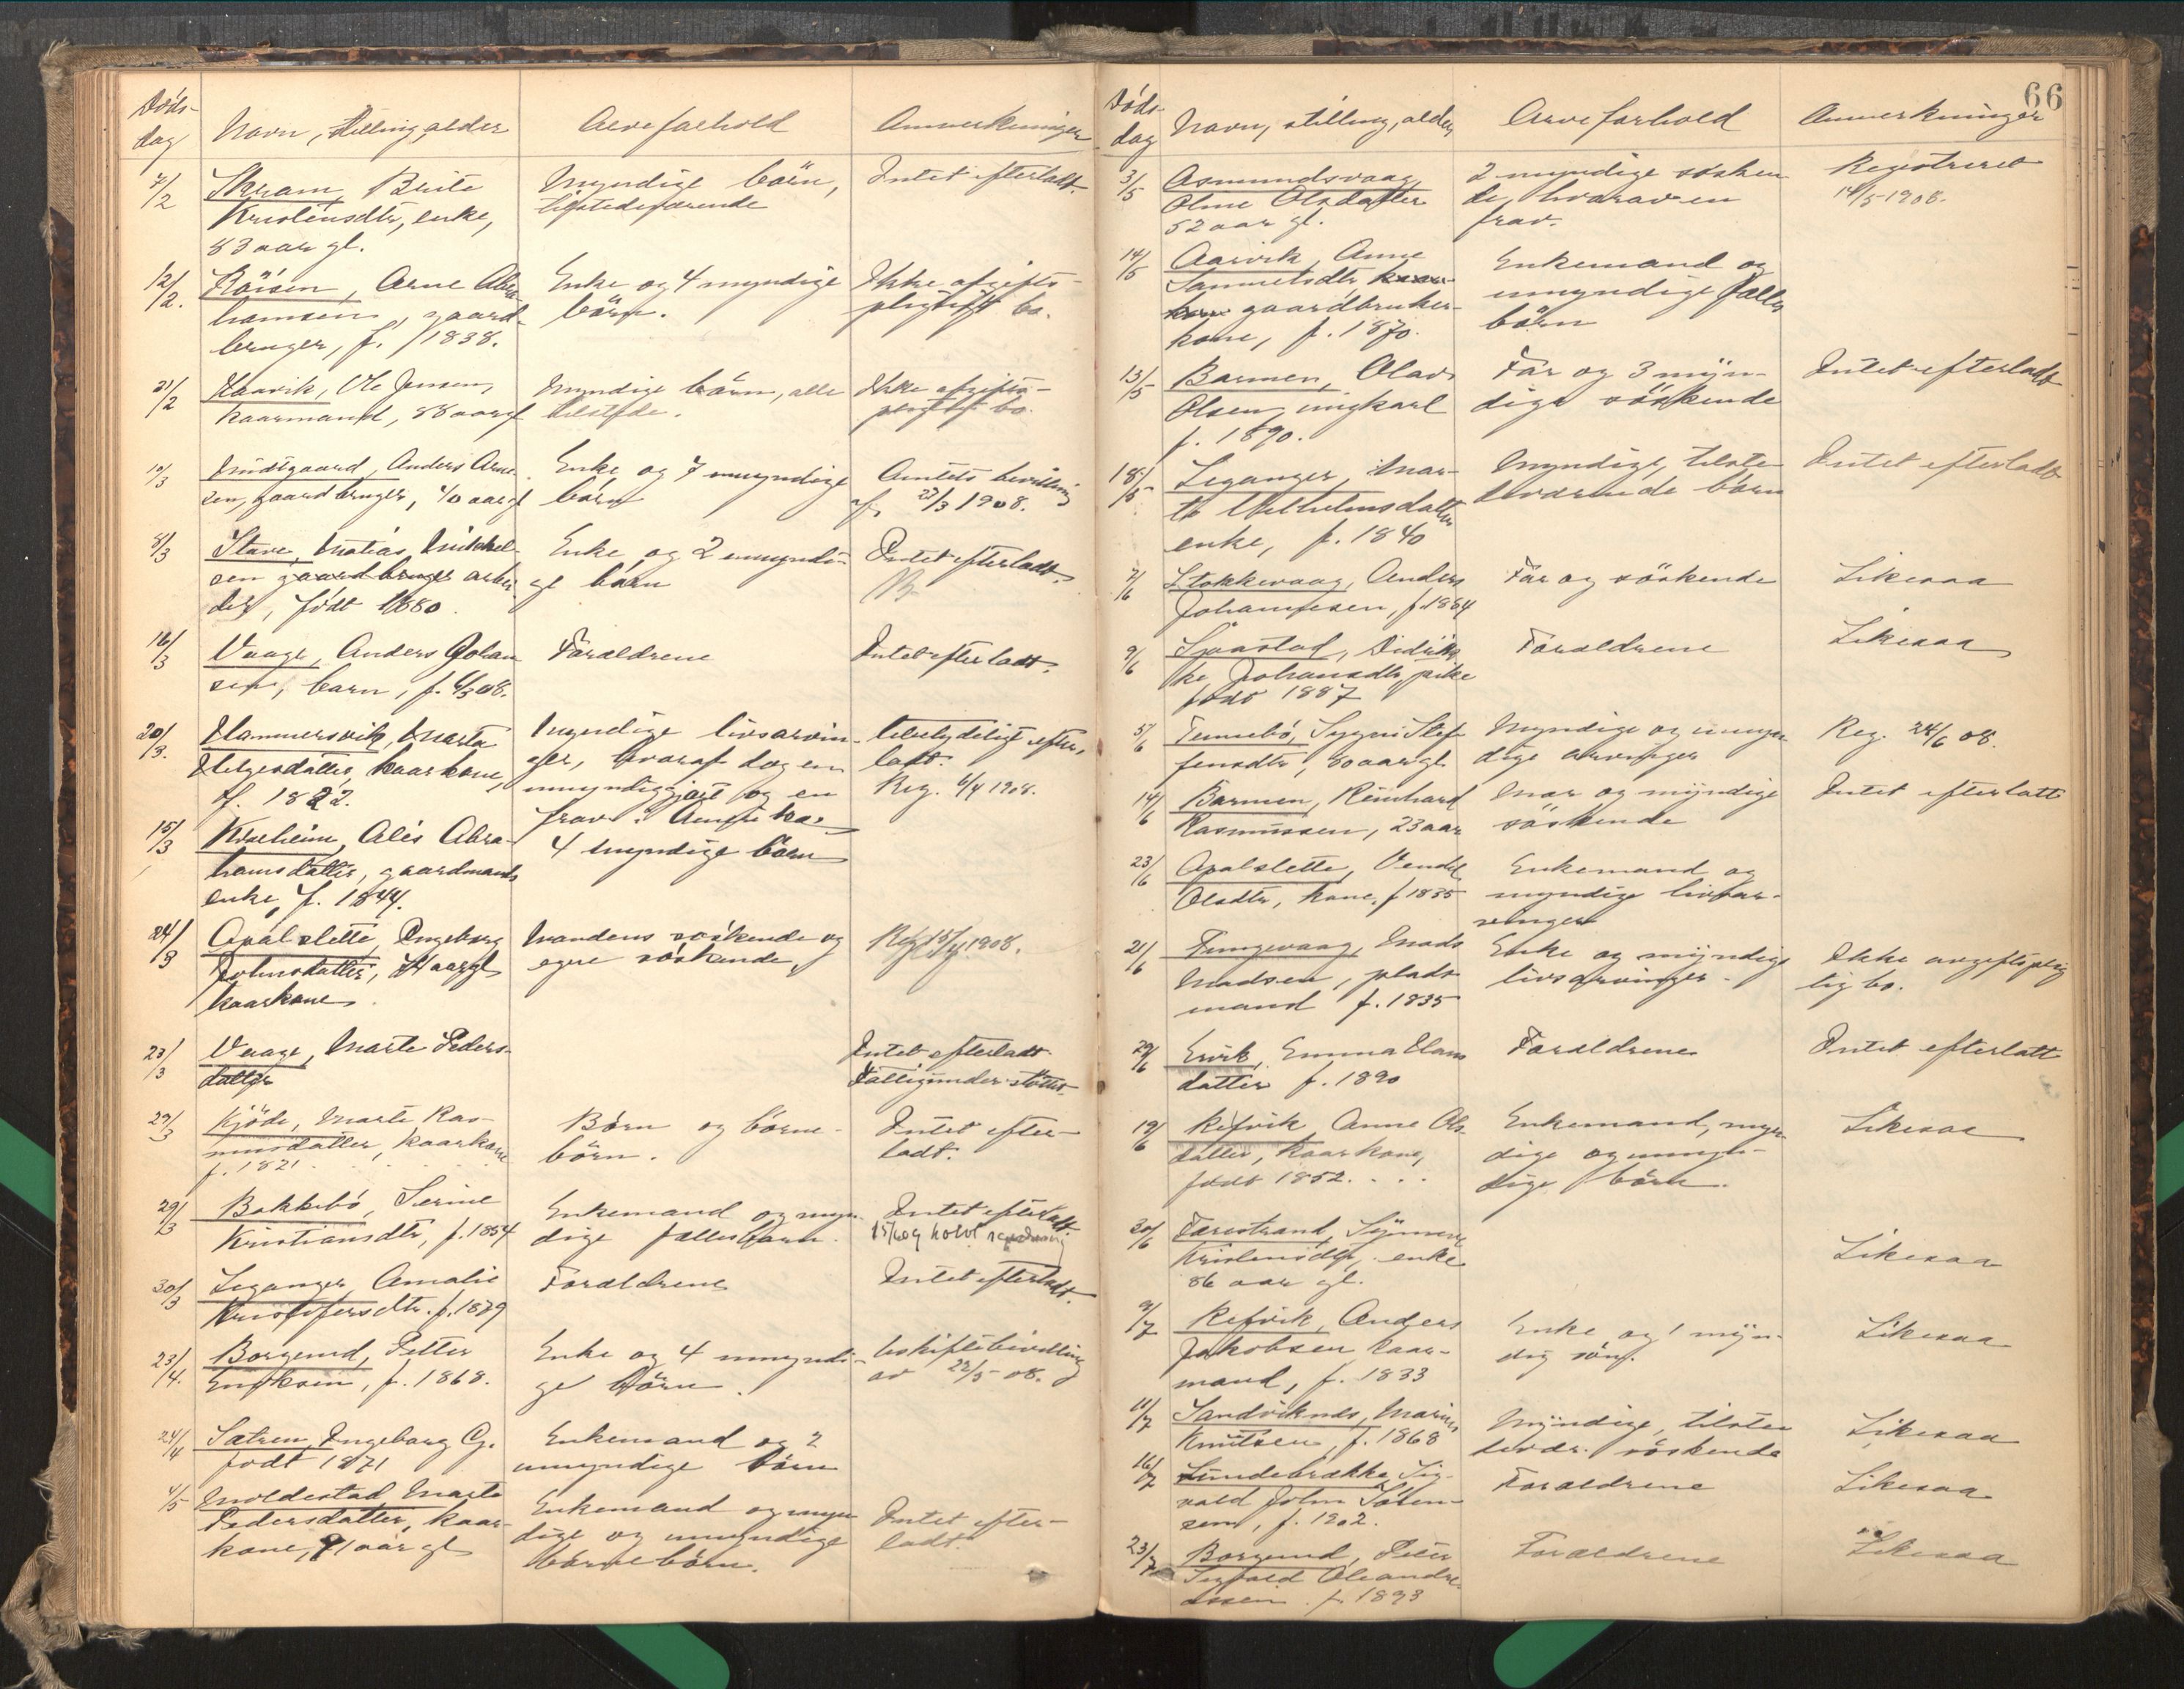 Döds-
dag
Navn, stilling, alder
Arveforhold
Anmerkninger
7/2
Skram, Brite
Kristensdtr, enke,
83 aar gl.
Myndige börn,
tilstedeværende
Intet efterladt.
12/2.
Röisen, Arne Abra-
hamsen, gaard-
bruger, f. 1838.
Enke og 4 myndige
börn.
Ikke afgifts-
pligtigt bo.
21/2
Haavik, Ole Jensen,
kaarmand, 88 aar gl
Myndige börn, alle
tilstede.
Ikke afgifts-
pligtigt bo.
10/3
Midtgaard, Anders Arne-
sen, gaardbruger, 40 aar gl
Enke og 7 umyndige
börn
Amtets bevilling
af 23/3 1908.
8/3
Stave, Matias Mikkel-
sen gaardbruger arbei
der, födt 1880.
Enke og 2 umyndi-
ge börn
Intet efterladt.
16/3
Vaage, Anders Johan
sen, barn, f. 6/3 08.
Forældrene
Intet efterladt.
20/3.
Hammersvik, Marta
Helgesdatter, kaarkone,
f. 1822.
Myndige livsarvin-
ger, hvoraf dog en
umyndiggjort og en
frav. i Amerika
Ubetydeligt efter-
ladt.
Reg. 6/4 1908.
15/3
Alis Abra-
hamsdatter, gaardmands
enke, f. 1844.
4 myndige börn
24/3
Apalslette, Ingeborg
Johnsdatter, aar gl
kaarkone
Mandens söskende og
egne söskende
Reg 15/4 1908.
23/3
Vaage, Marte Peders-
datter
Intet efterladt.
Fattigunderstöttet.
29/3
Kjöde, Marte Ras-
musdatter, kaarkone
f. 1821
Börn og börne-
börn.
Intet efter-
ladt.
29/3
Bakkebö, Serine
Kristiansdtr, f. 1854
Enkemand og myn-
dige fællesbarn.
Intet efterladt
30/3
Leganger, Amalie
Kristofersdtr. f. 1879
Forældrene
Intet efterladt.
23/4.
Borgund, Petter
Eriksen, f. 1868.
Enke og 4 umyndi-
ge börn.
Uskiftebevilling
av 22/5 08.
24/4
Sætren, Ingeborg G.
födt 1871
Enkemand og 2
umyndige börn
4/5
Moldestad Marte
Pedersdatter, kaar-
kone, 71 aar gl
Enkemand og myn
dige og umyndige
börnebörn.
Intet efter-
ladt.
66
Döds-
dag
Navn, stilling, alder
Arveforhold
Anmerkninger
3/5
Osmundsvaag,
Oline Olsdatter
52 aar gl.
2 myndige sösken
de, hvorav en
frav.
Registreret
14/5 1908.
14/5
Aarvik, Anne
Samuelsdtr,
gaardbruker-
kone, f. 1870.
Enkemand og
umyndige fælles
börn
13/5
Barmen, Olav
Olsen, ungkarl
f. 1890.
Far og 3 myn-
dige söskende
Intet efterladt
18/5
Leganger, Mar-
te Vilhelmsdatter
enke, f. 1840
Myndige, tilste
deværende börn
Intet efterladt
7/6
Stokkevaag, Anders
Johannesen, f. 1884
Far og söskende
Likesaa
9/6
Sjaastad, Didrik-
ke Johansdtr, pike
födt 1887
Forældrene
Likesaa
5/6
Tennebö, Sygni Stef
fensdtr, 80 aar gl
Myndige og umyn
dige arvinger
Reg. 24/6 08.
14/6
Barmen, Reinhard
Rasmussen, 23 aar
Mor og myndige
söskende
Intet efterlatt
23/6
Apalslette, Vendel
Olsdtr, kone, f. 1835
Enkemand og
myndige livsar-
vinger
21/6
Tungevaag, Mads
Madsen, plads-
mand f. 1835
Enke og myndige
livsarvinger.
Ikke avgiftsplig
tig bo.
29/6
Ervik, Emma Hans
datter f. 1890
Forældrene
Intet efterlatt
19/6
Refvik, Anne Ols-
datter, kaarkone,
födt 1852.
Enkemand, myn-
dige og umyn-
dige börn.
Likesaa
30/6
Færestrand, Synneve
Kristensdtr, enke
86 aar gl.
Likesaa
9/7
Refvik, Anders
Jakobsen kaar-
mand, f. 1833
Enke og 1 myn-
dig sön.
Likesaa
11/7
Sandviknes, Marius
Knutsen, f. 1868
Myndige, tilste
devær. söskende
Likesaa
16/7
Lundebrække, Sig-
vald John Sören-
sen, f. 1902.
Forældrene
Likesaa
23/7
Borgund, Peter
Oleandre-
assen. f. 1893
Forældrene
Likesaa